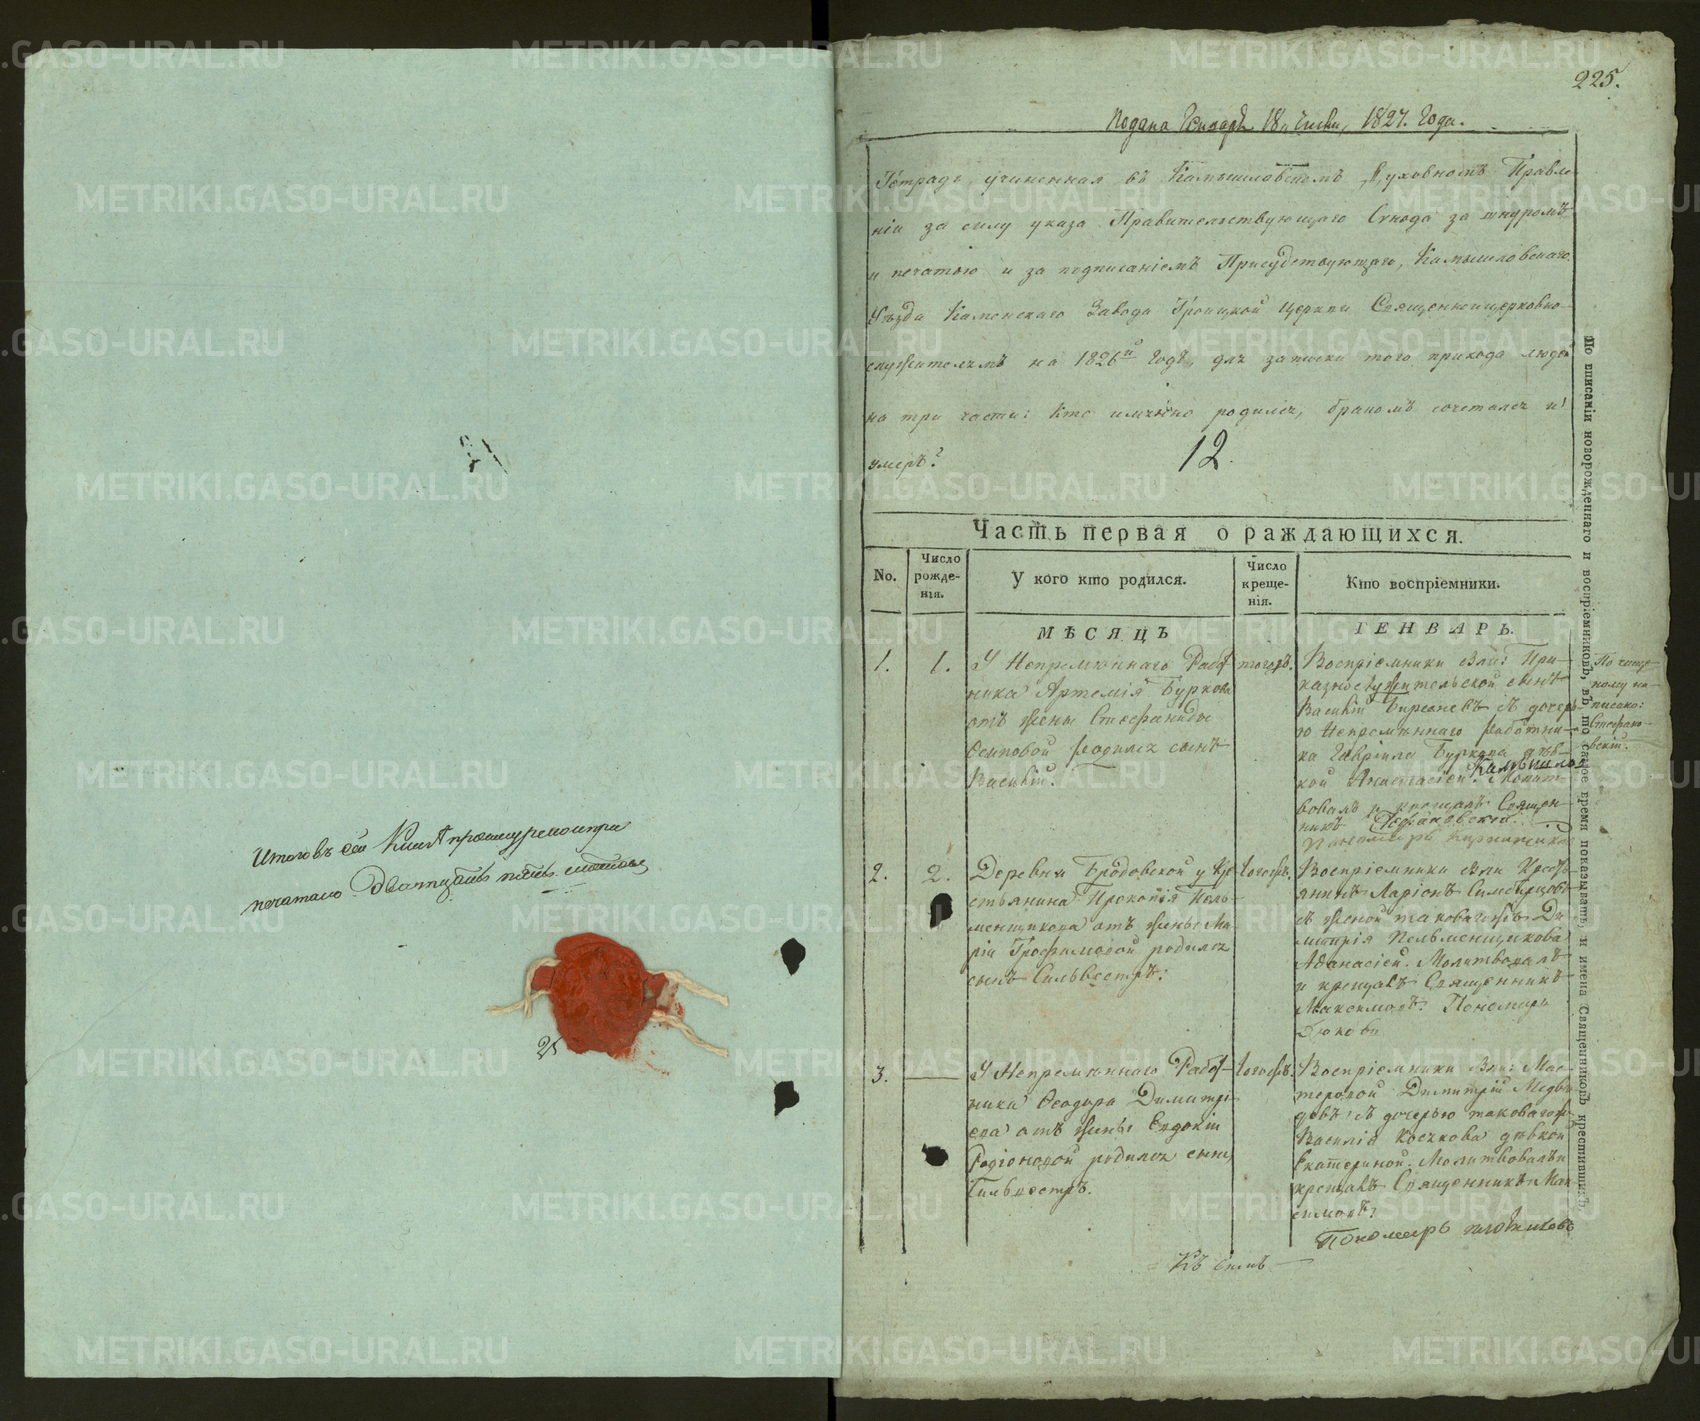 Итого въ сей Книгѣ прошнурено и при
печатано двадцать пять листовъ
25
225.
Подана Генваря 18 числа, 1827. Года.
Тетрадь учиненная въ Камышловскомъ Духовномъ Правле
ніи за силу указа Правительствующаго Сѵнода за шнуромъ
и печатью и за подписаніемъ Присудствующаго, Камышловскаго
Уѣзда Каменскаго Завода Троицкой Церкви Священноцерковно-
служителямъ на 1826й Годъ, для записки того прихода людей
на три части: Кто имянно родился, бракомъ сочетался и
умеръ?
12.
Часть первая о раждающихся.
No.
Число рожде- нія.
У кого кто родился.
Число креще- нія.
Кто воспріемники.
МѢСЯЦЪ
ГЕНВАРЬ.
1.
1.
У Непремѣннаго Работ
ника Артемія Буркова
отъ жены Стефаниды
Осиповой родился сынъ
Василій.
тогожъ.
Воспріемники были: При-
казнослужительской сынъ
Василій съ дочерь-
ю Непремѣннаго работни-
ка Гавріила Буркова дѣв-
кой Анастасіей. Молит-
вовалъ и крещалъ Священ-
никъ Стефановскій.
По чище-
ному на-
писано:
Стефано-
вскій.
2.
2.
Деревни Бродовской у Кре
стьянина Прокопія Пель-
менщикова отъ жены Ма-
ріи Трофимовой родился
сынъ Сильвестръ.
тогожъ.
Воспріемники были Крестъ-
янинъ Ларіонъ
съ женой таковагожъ Ди-
митрія Пельменщикова
Афанасіей. Молитвовалъ
и крещалъ Священникъ
Максимовъ. Пономарь
3.
У Непремѣннаго Работ-
ника Ѳеодора Димитрі-
ева отъ жены Евдокіи
Родіоновой родился сынъ
Сильвестръ.
тогожъ.
Воспріемники были: Мас-
теровой Димитрій Медвѣ
девъ съ дочерью таковагожъ
Василія Косикова дѣвкой
Екатериной. Молитвовалъ и
крещалъ Священникъ Мак
симовъ.
Пономарь Плотниковъ
Къ симъ
По вписаніи новорожденнаго и воспріемниковъ, въ то самое время показывать и имена Священниковъ крестившихъ.
METRIKI.GASO-URAL.RU